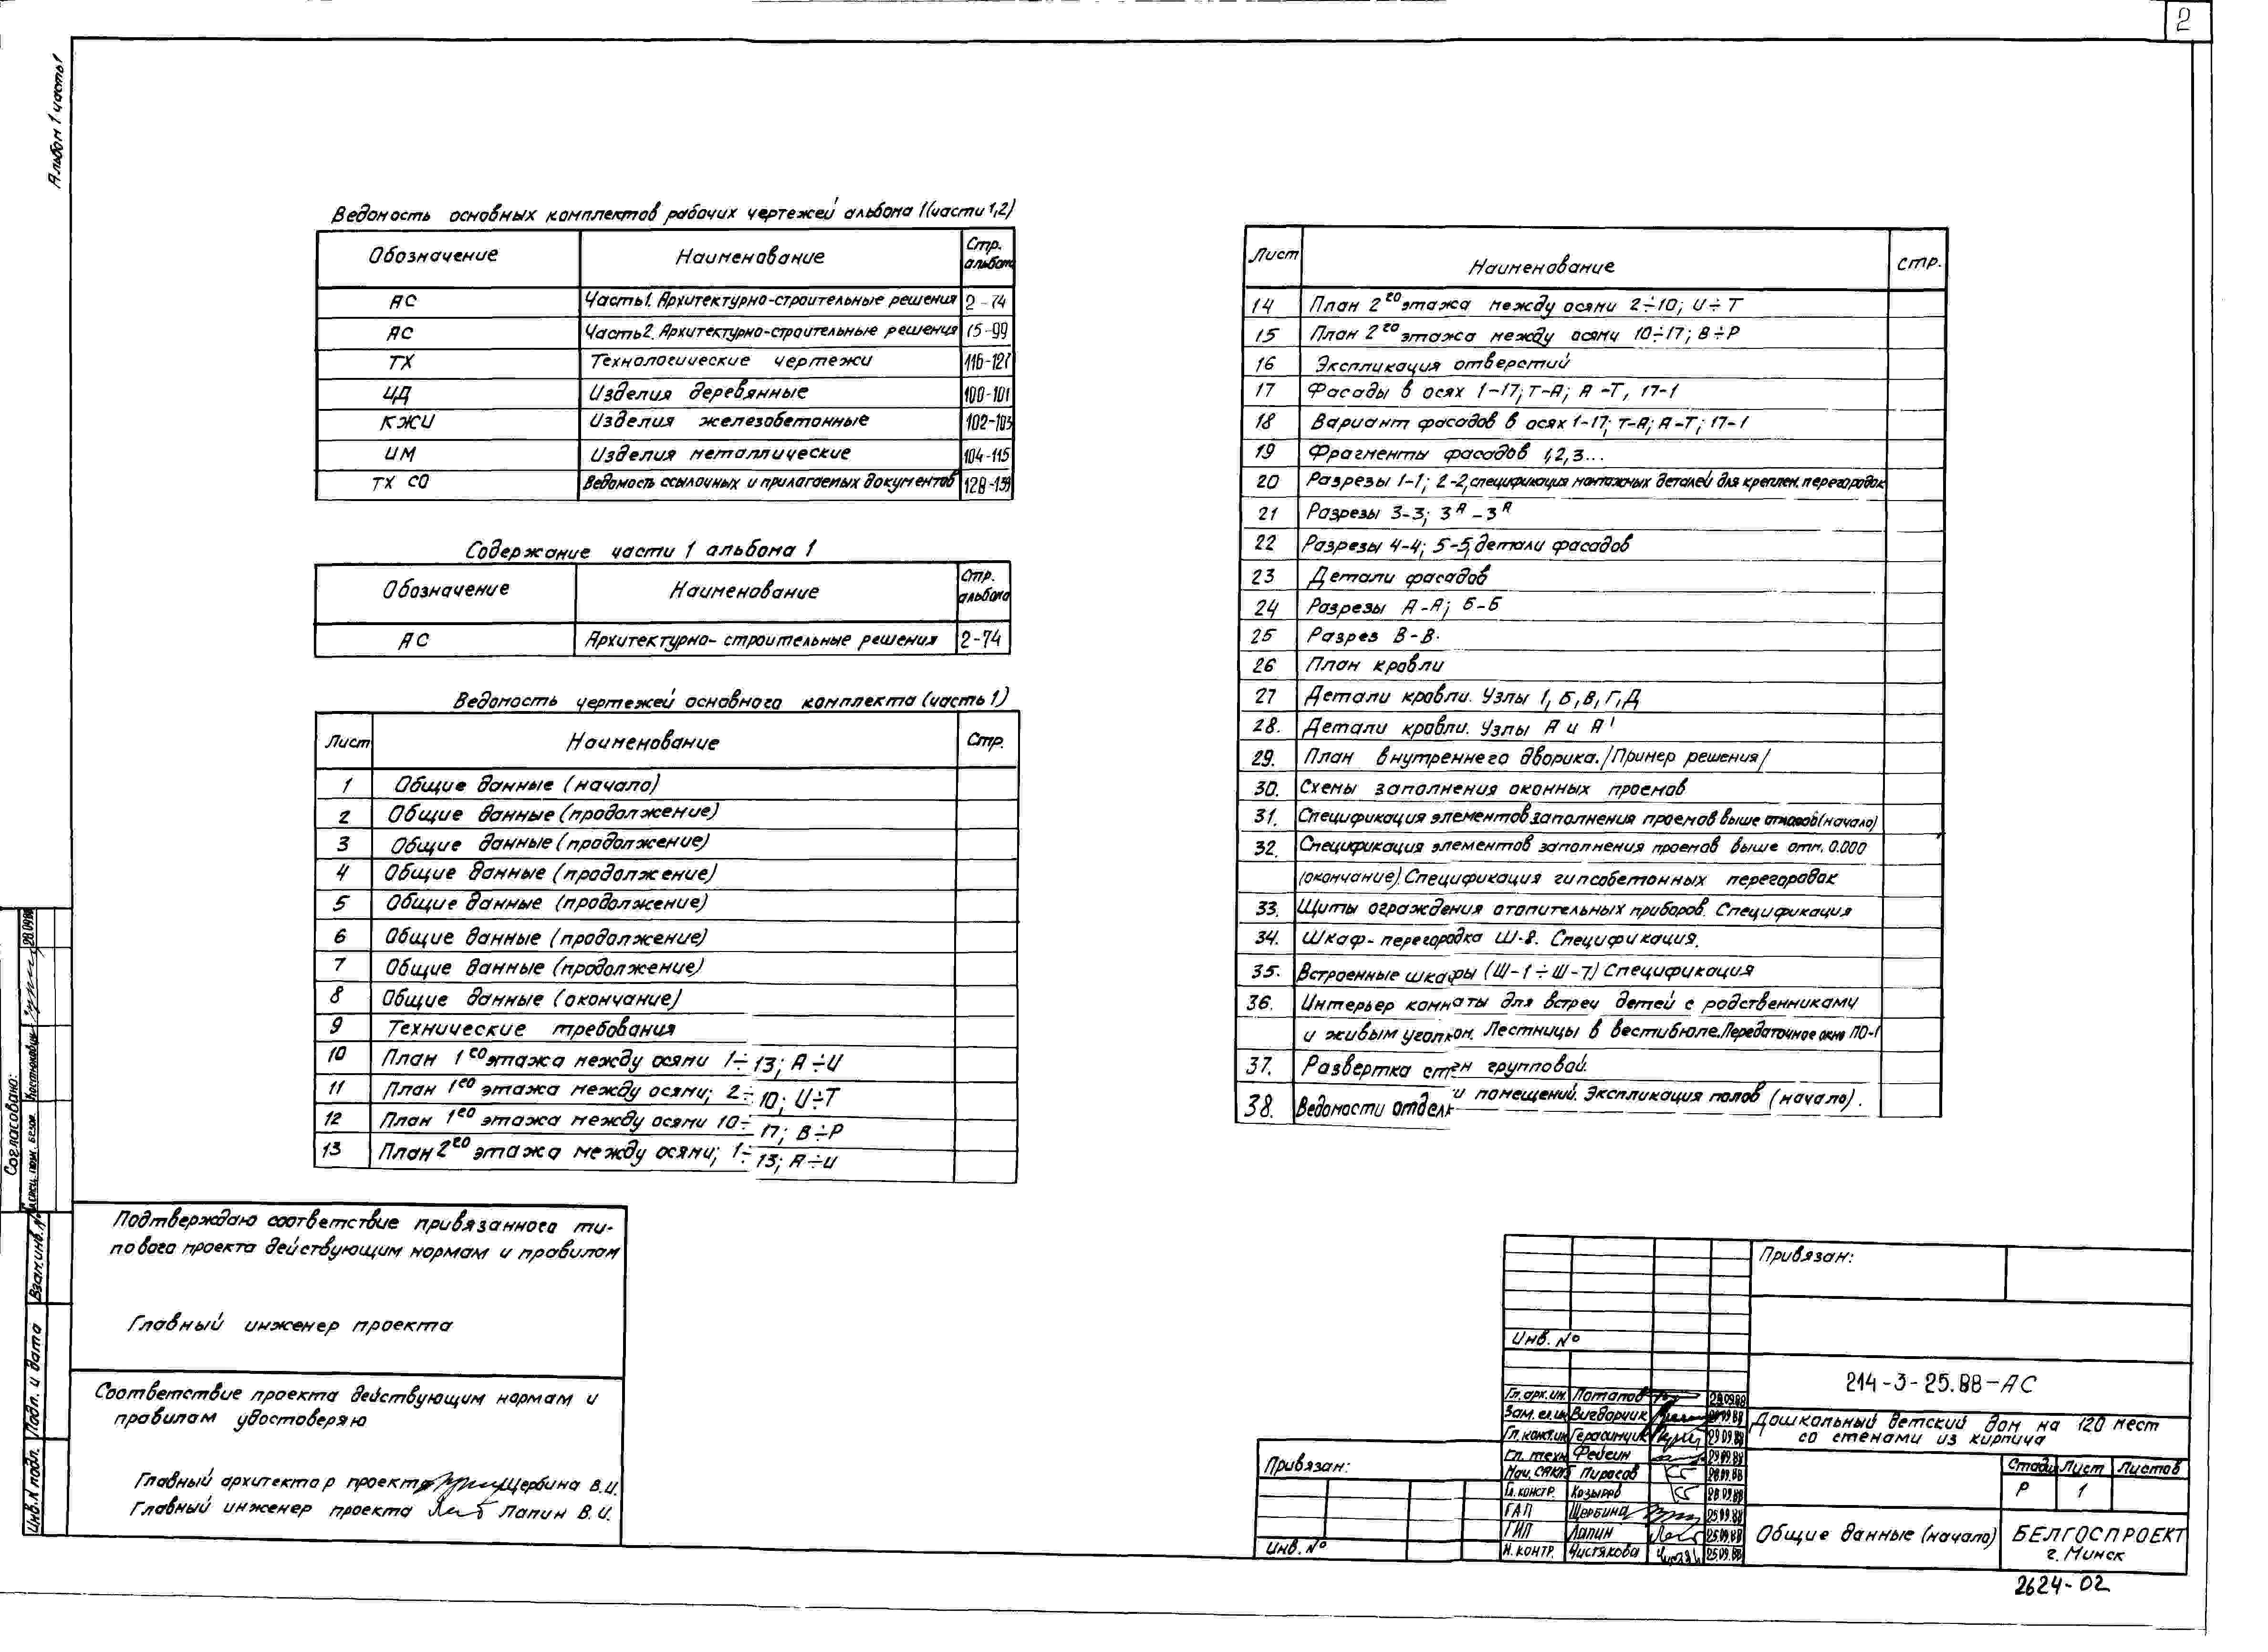 2
Альбом 1 часть 1
Ведомость основных комплектов рабочих чертежей альбома 1 (части 1,2)
Обозначение Наименование Стр. альбома
АС Часть 1. Архитектурно-строительные решения 2-74
АС Часть 2. Архитектурно-строительные решения 75-99
ТХ Технологические чертежи
ИД Изделия деревянные 100-101
КЖИ Изделия железобетонные 102-103
ИМ Изделия металлические 104-115
ТХ СО Ведомость ссылочных и прилагаемых документов
Содержание части 1 альбома 1
Обозначение Наименование Стр. альбома
АС Архитектурно-строительные решения 2-74
Ведомость чертежей основного комплекта (часть 1)
Лист Наименование Стр.
1 Общие данные (начало)
2 Общие данные (продолжение)
3 Общие данные (продолжение)
4 Общие данные (продолжение)
5 Общие данные (продолжение)
6 Общие данные (продолжение)
7 Общие данные (продолжение)
8 Общие данные (окончание)
9 Технические требования
10 План 1го этажа между осями 1÷13; А÷И
11 План 1го этажа между осями; 2÷10; И÷Т
12 План 1го этажа между осями 10÷17; В÷Р
13 План 2го этажа между осями; 1÷13; А÷И
Лист Наименование Стр.
14 План 2го этажа между осями 2÷10; И÷Т
15 План 2го этажа между осями 10÷17; В÷Р
16 Экспликация отверстий
17 Фасады в осях 1-17; Т-А; А-Т, 17-1
18 Вариант фасадов в осях 1-17; Т-А; А-Т; 17-1
19 Фрагменты фасадов 1,2,3...
20 Разрезы 1-1; 2-2, спецификация монтажных деталей для креплен. перегородок
21 Разрезы 3-3; 3А-3А
22 Разрезы 4-4; 5-5, детали фасадов
23 Детали фасадов
24 Разрезы А-А; Б-Б
25 Разрез В-В.
26 План кровли
27 Детали кровли. Узлы 1, Б, В, Г, Д
28. Детали кровли. Узлы А и А'
29. План внутреннего дворика. /Пример решения/
30. Схемы заполнения оконных проемов
31. Спецификация элементов заполнения проемов выше (начало)
32. Спецификация элементов заполнения проемов выше отм. 0.000
(окончание). Спецификация гипсобетонных перегородок
33. Щиты ограждения отопительных приборов. Спецификация
34. Шкаф-перегородка Ш-8. Спецификация.
35. Встроенные шкафы (Ш-1÷Ш-7) Спецификация
36. Интерьер комнаты для встреч детей с родственниками
и живым уголком. Лестницы в вестибюле. Передаточное окно ПО-1
37. Развертка стен групповой.
38. Ведомости отделки помещений. Экспликация полов (начало).
Подтверждаю соответствие привязанного ти-
пового проекта действующим нормам и правилам
Главный инженер проекта
Соответствие проекта действующим нормам и
правилам удостоверяю
Главный архитектор проекта Щербина В.И.
Главный инженер проекта Лапин В.И.
Согласовано:
28.09.88
Взам.инв.№
Подп. и дата
Инв.№ подл.
Привязан:
Инв. №
Привязан:
Инв. №
Гл.арх.ин. Потапов 29.09.88
Зам.гл.ин. Вигдорчик
Гл.конст.ин. Герасимчик 29.09.88
Гл. техн. Фейгин 29.09.88
Пирогов 28.09.88
Гл.констр. Козырев 28.09.88
ГАП Щербина 25.09.88
ГИП Лапин 25.09.88
Н.контр. Чистякова 25.09.88
214-3-25.88-АС
Дошкольный детский дом на 120 мест
со стенами из кирпича
Стадия Лист Листов
Р 1
Общие данные (начало)
БЕЛГОСПРОЕКТ
г. Минск
2624-02